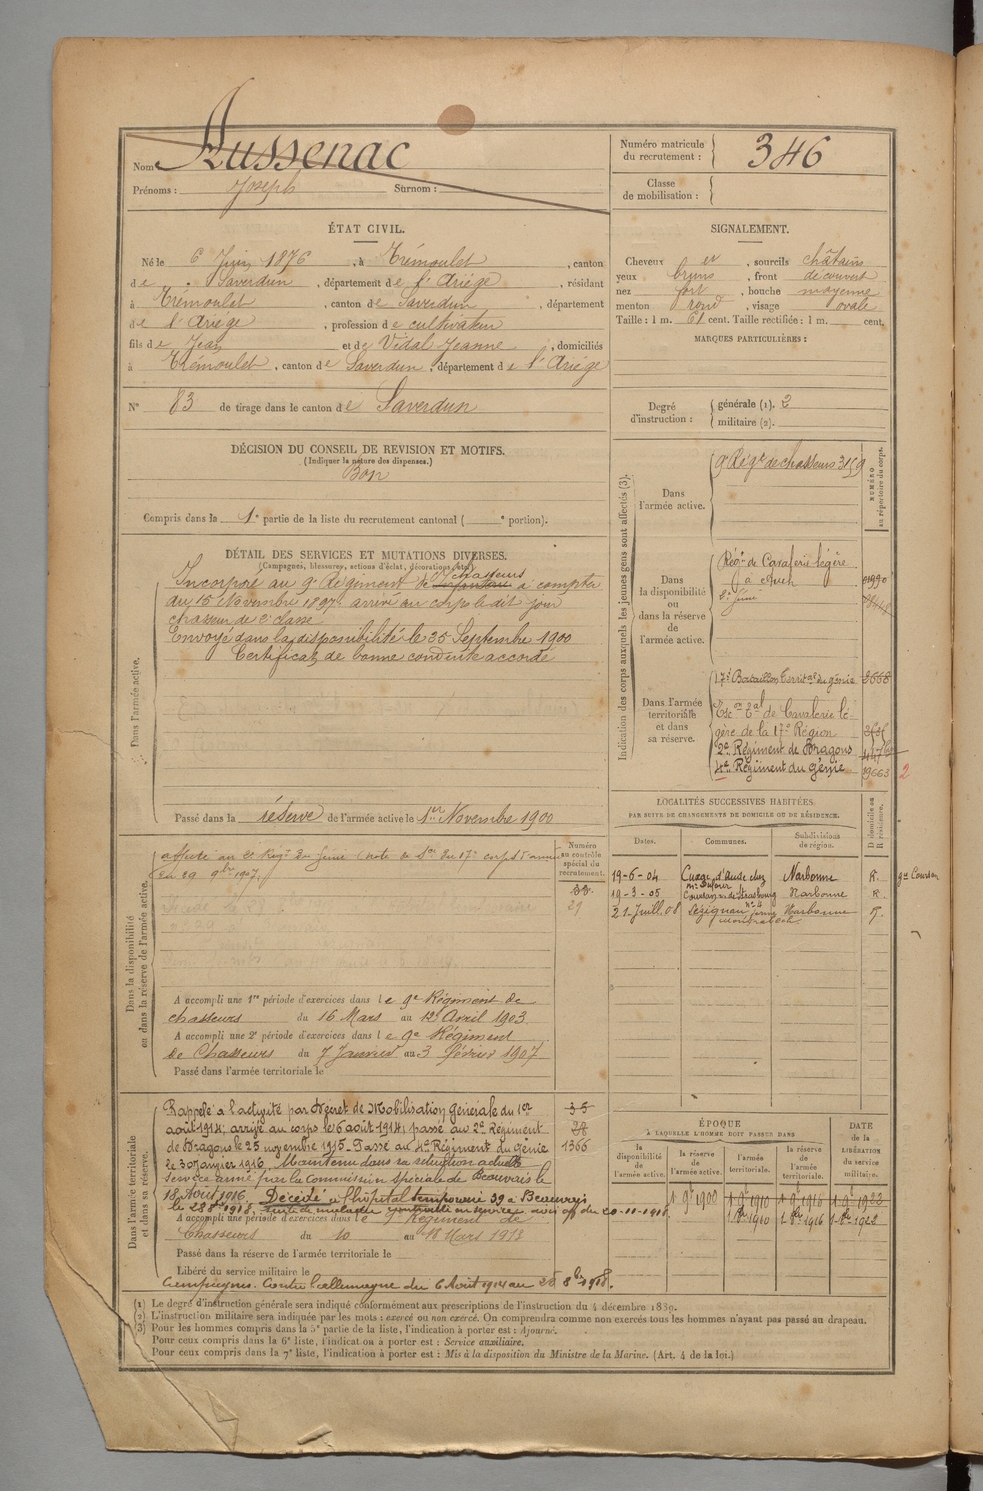 Nom Aussenac
Prénoms : Joseph Surnom :
Numéro matricule du recrutement : 346
Classe de mobilisation :
ÉTAT CIVIL.
Né le 6 Juin 1876, à Trémoulet, canton
de Saverdun, département de l'Ariège, résidant
à Trémoulet, canton de Saverdun, département
de l'Ariège, profession de cultivateur
fils de Jean et de Vidal Jeanne, domiciliés
à Trémoulet, canton de Saverdun, département de l'Ariège
N° 83 de tirage dans le canton de Saverdun
SIGNALEMENT.
Cheveux et, sourcils châtains
yeux bruns, front découvert
nez fort, bouche moyenne
menton rond, visage ovale
Taille : 1 m. 61 cent. Taille rectifiée : 1 m. cent.
MARQUES PARTICULIÈRES :
Degré d'instruction : générale (1). 2
militaire (2).
DÉCISION DU CONSEIL DE REVISION ET MOTIFS.
(Indiquer la nature des dispenses.)
Bon
Compris dans la 1e partie de la liste du recrutement cantonal ( e portion).
DÉTAIL DES SERVICES ET MUTATIONS DIVERSES.
(Campagnes, blessures, actions d'éclat, décorations, etc.)
Dans l'armée active.
Incorporé au 9e Régiment de chasseurs à compter
du 15 Novembre 1897 arrivé au corps le dit jour
chasseur de 2e classe
Envoyé dans la disponibilité le 25 Septembre 1900
Certificat de bonne conduite accordé
Passé dans la réserve de l'armée active le 1er Novembre 1900
Indication des corps auxquels les jeunes gens sont affectés (3).
NUMÉRO au répertoire du corps.
Dans l'armée active.
9e Régt de chasseurs 3159
Dans la disponibilité ou dans la réserve de l'armée active.
Régt de Cavalerie légère
à Auch
2e Génie
Dans l'armée territoriale et dans sa réserve.
17e Bataillon Territal du génie 2668
Esc on Tal de Cavalerie lé-
gère de la 17e Région
2e Régiment de Dragons
4e Régiment du génie 19663 2
Dans la disponibilité ou dans la réserve de l'armée active.
Numéro au contrôle spécial du recrutement.
affecté au 2e Régt du Génie (note de Sce du 17e corps d'armée
du 29 9bre 1907)
33
29
A accompli une 1re période d'exercices dans le 9e Régiment de
chasseurs du 16 Mars au 12 Avril 1903
A accompli une 2e période d'exercices dans le 9e Régiment
de Chasseurs du 7 Janvier au 3 février 1907
Passé dans l'armée territoriale le
LOCALITÉS SUCCESSIVES HABITÉES
PAR SUITE DE CHANGEMENTS DE DOMICILE OU DE RÉSIDENCE.
Dates. Communes. Subdivisions de région. D domicile ou R résidence.
19-6-04 Cuxac d'Aude chez Mr Dufour Narbonne R.
19-3-05 Coursan rue de Strasbourg n° 4 Narbonne R
21-Juill. 08 Lézignan Narbonne
Dans l'armée territoriale et dans sa réserve.
Rappelé à l'activité par Décret de Mobilisation générale du 1er
août 1914, arrivé au corps le 6 août 1914, passé au 2e Régiment
de Dragons le 25 novembre 1915. Passé au 4e Régiment du génie
le 30 janvier 1916. Maintenu dans sa situation actuelle
service armé par la Commission spéciale de Beauvais le
18 Août 1916. Décédé à l'hôpital temporaire 39 à Beauvais
le 28 8bre 1918, suite de maladie contractée en service avis off du 20-11-1918
35
1366
A accompli une période d'exercices dans le 9e Régiment de
Chasseurs du 10 au 18 Mars 1913
Passé dans la réserve de l'armée territoriale le
Libéré du service militaire le
Campagnes. Contre l'allemagne du 6 Août 1914 au 28 8bre 1918.
ÉPOQUE
À LAQUELLE L'HOMME DOIT PASSER DANS
la disponibilité de l'armée active. la réserve de l'armée active. l'armée territoriale. la réserve de l'armée territoriale. DATE de la LIBÉRATION du service militaire.
1 9bre 1900 1 9bre 1910 1 9bre 1916 1 9bre 1922
1 8bre 1910 1 8bre 1916 1 8bre 1922
(1) Le degré d'instruction générale sera indiqué conformément aux prescriptions de l'instruction du 4 décembre 1889.
(2) L'instruction militaire sera indiquée par les mots : exercé ou non exercé. On comprendra comme non exercés tous les hommes n'ayant pas passé au drapeau.
(3) Pour les hommes compris dans la 5e partie de la liste, l'indication à porter est : Ajourné.
Pour ceux compris dans la 6e liste, l'indication à porter est : Service auxiliaire.
Pour ceux compris dans la 7e liste, l'indication à porter est : Mis à la disposition du Ministre de la Marine. (Art. 4 de la loi.)